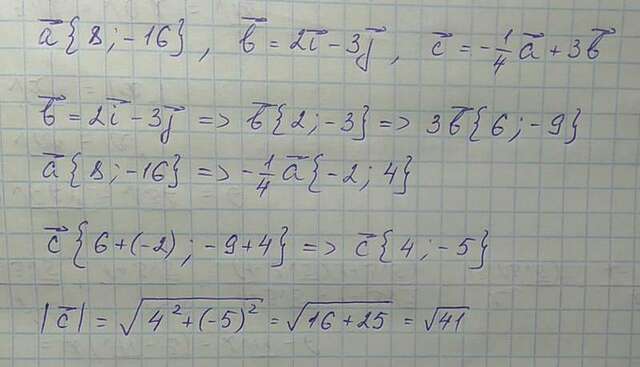 a⃗ {8 ; -16} , b⃗ = 2i⃗ - 3j⃗ , c⃗ = -1/4 a⃗ + 3b⃗
b⃗ = 2i⃗ - 3j⃗ => b⃗ {2 ; -3} => 3b⃗ {6 ; -9}
a⃗ {8 ; -16} => -1/4 a⃗ {-2 ; 4}
c⃗ {6 + (-2) ; -9 + 4} => c⃗ {4 ; -5}
|c⃗| = √(4² + (-5)²) = √(16 + 25) = √41